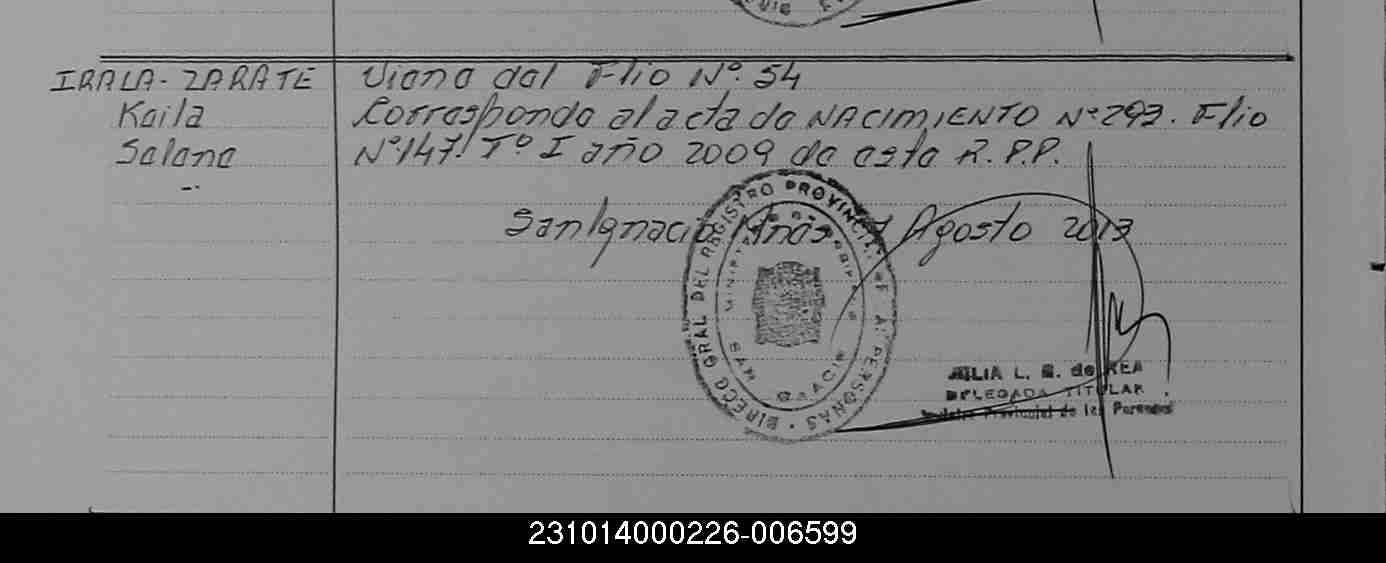 IRALA-ZARATE
Kaila
Salana
Viana dal Flio Nº. 54
Corrasponda al acta da NACIMIENTO Nº 293. Flio
Nº 147. Tº I año 2009 da asta R.P.P.
San Ignacio Mnas Agosto 2013
DIRECC GRAL DEL REGISTRO PROVINCIAL DE PERSONAS
SAN
L. R. de REA
DELEGADA TITULAR
Provincial de las Personas
231014000226-006599